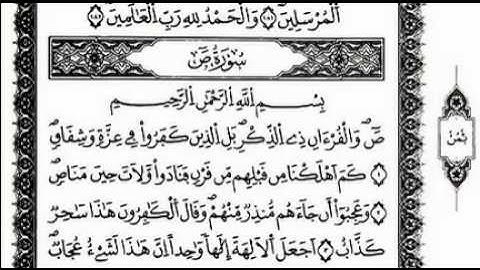 اَ۬لْمُرْسَلِينَ ۝ وَالْحَمْدُ لِلهِ رَبِّ اِ۬لْعَٰلَمِينَ ۝
سُورَةُ صَٓ
بِسْمِ اِ۬للَّهِ اِ۬لرَّحْمَٰنِ اِ۬لرَّحِيمِ
صَٓۖ وَالْقُرْءَانِ ذِے اِ۬لذِّكْرِۖ بَلِ اِ۬لذِينَ كَفَرُواْ فِے عِزَّةٖ وَشِقَاقٖۖ
۝ كَمَ اَهْلَكْنَا مِن قَبْلِهِم مِّن قَرْنٖ فَنَادَواْ وَّلَاتَ حِينَ مَنَاصٖۖ
۝ وَعَجِبُوٓاْ أَن جَآءَهُم مُّنذِرٞ مِّنْهُمْۖ وَقَالَ اَ۬لْكَٰفِرُونَ هَٰذَا سَٰحِرٞ
كَذَّابٌ ۝ اَجَعَلَ اَ۬لَالِهَةَ إِلَٰهاٗ وَٰحِداً اِنَّ هَٰذَا لَشَےْءٌ عُجَابٞۖ
ثُمُن